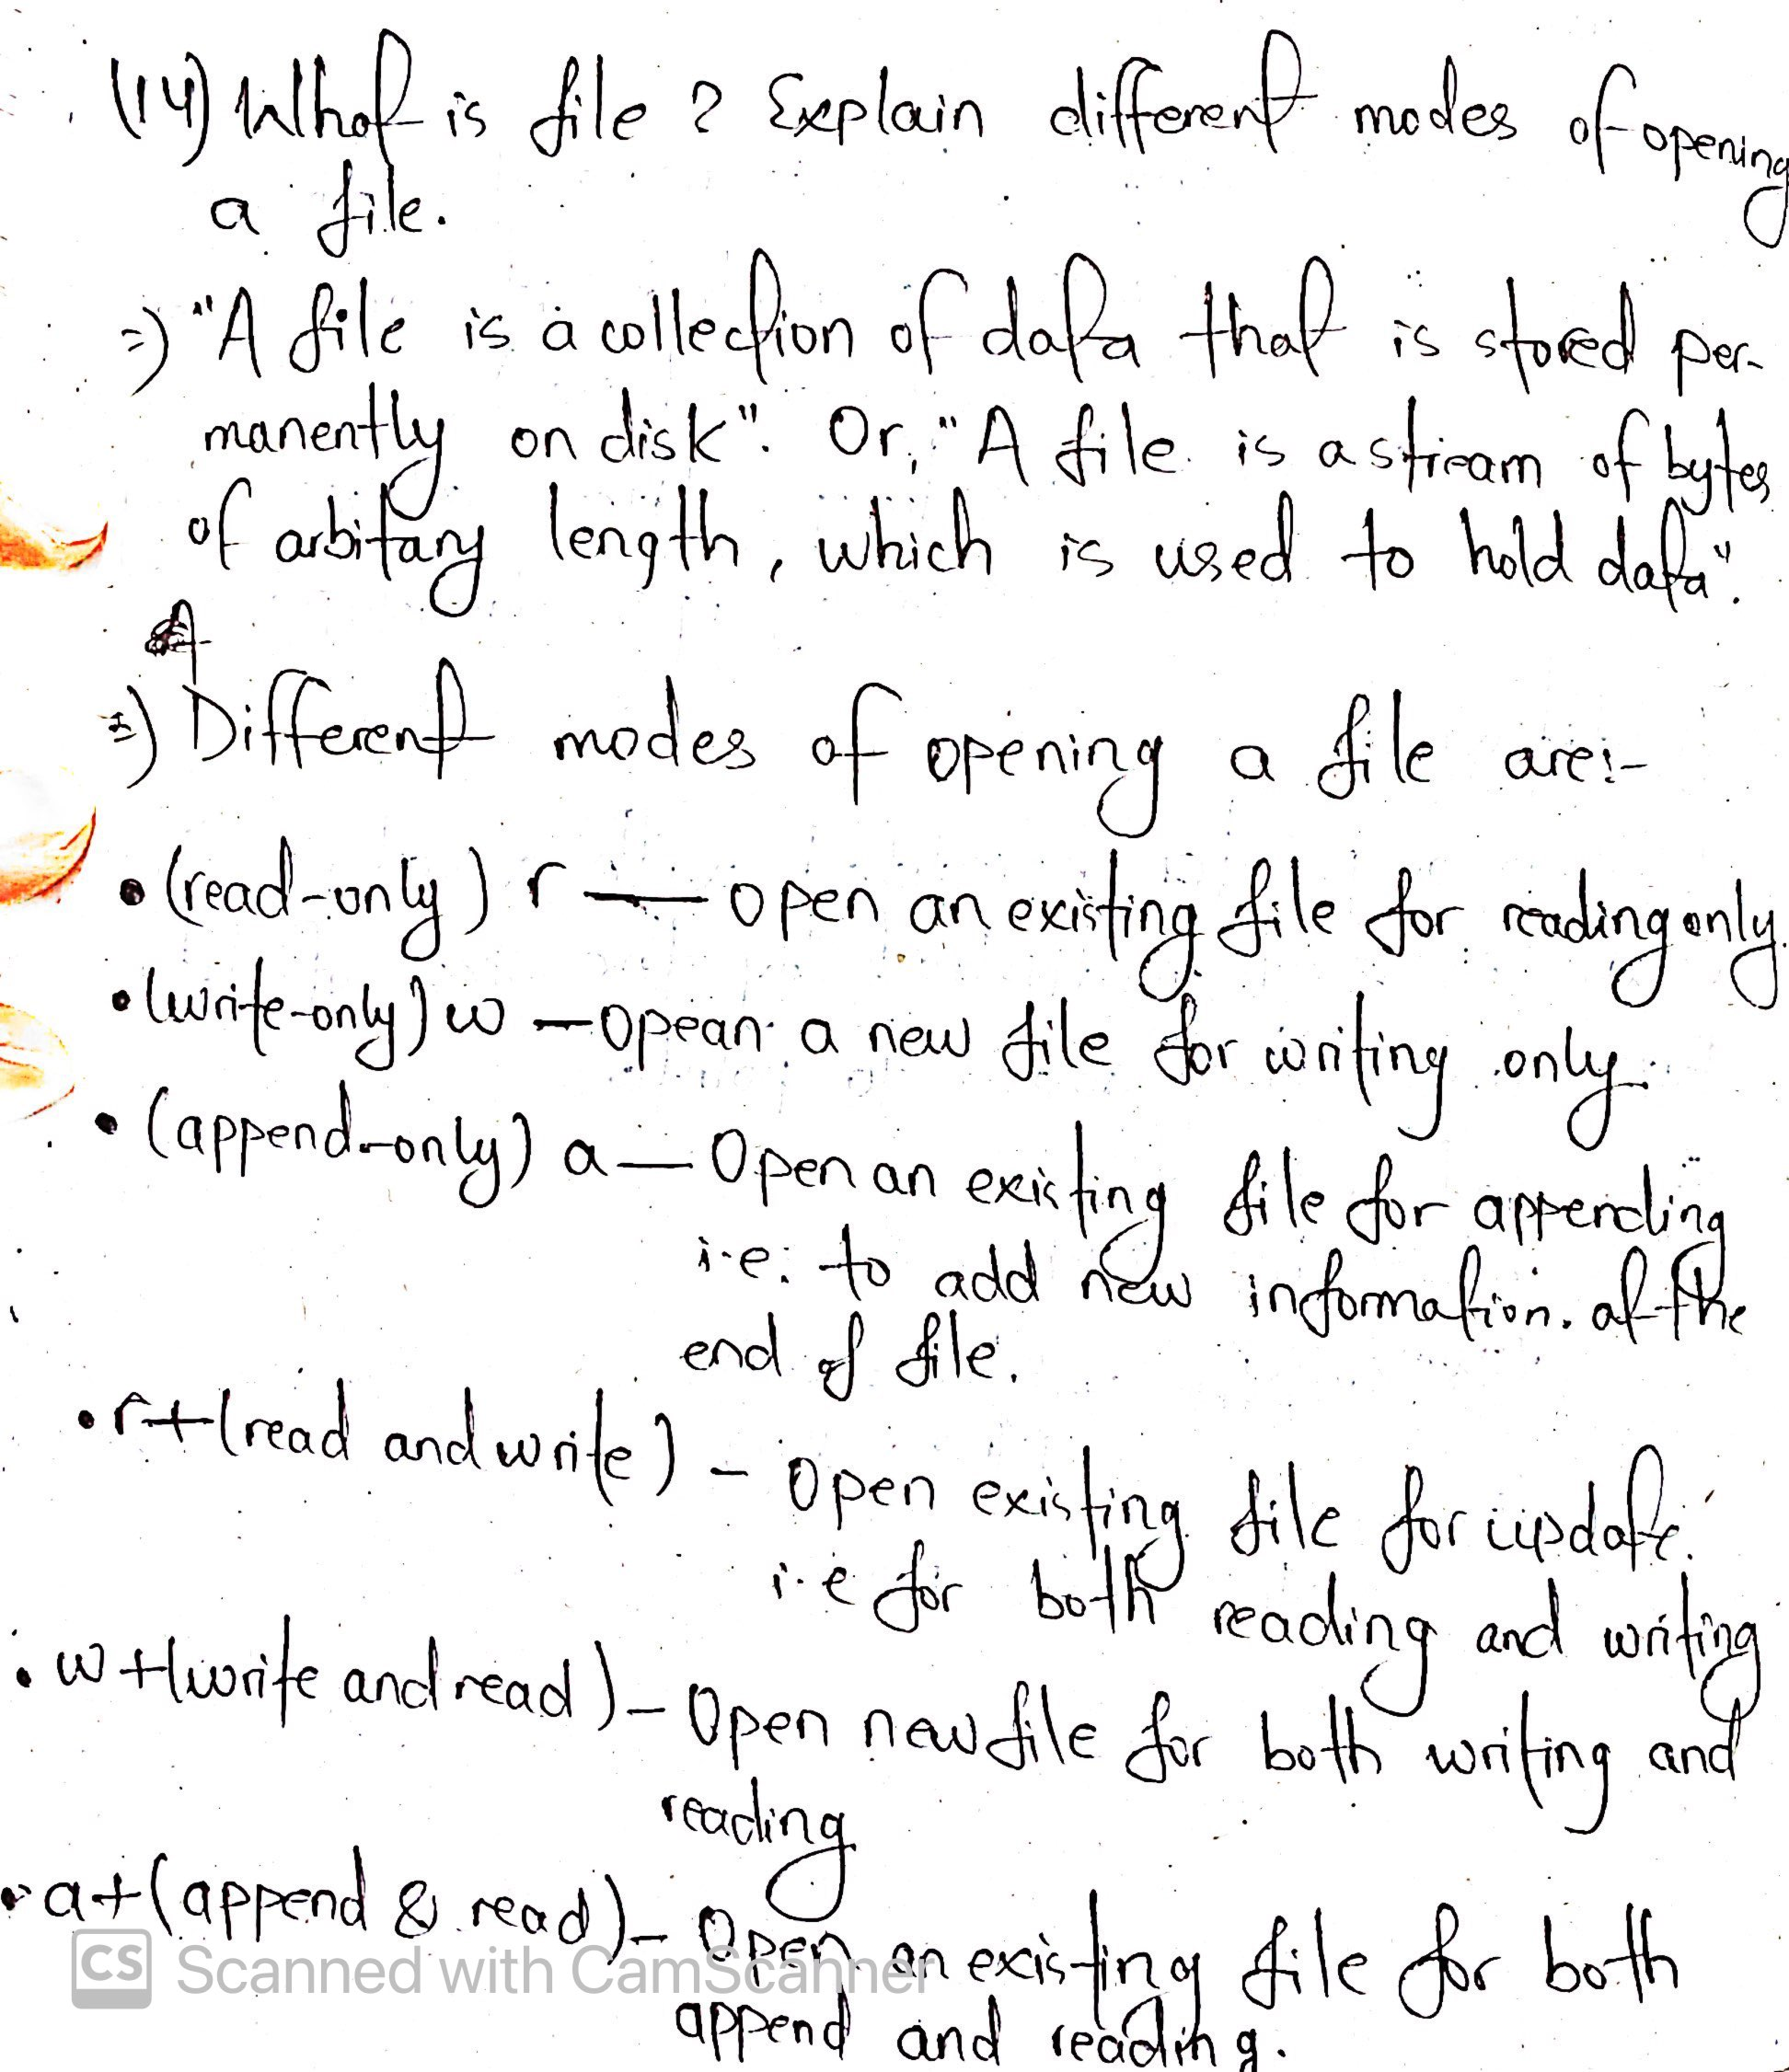 (14) What is file ? Explain different modes of opening
a file.
=) "A file is a collection of data that is stored per-
manently on disk". Or, "A file is a stream of bytes
of arbitary length, which is used to hold data".
=) Different modes of opening a file are:-
• (read-only) r — open an existing file for reading only.
• (write-only) w — Opean a new file for writing only.
• (append-only) a — Open an existing file for appending
i.e. to add new information. at the
end of file.
• r+ (read and write) - Open existing file for update.
i.e for both reading and writing
• w+ (write and read) - Open new file for both writing and
reading
• a+ (append & read) - Open an existing file for both
CS Scanned with CamScanner
append and reading.